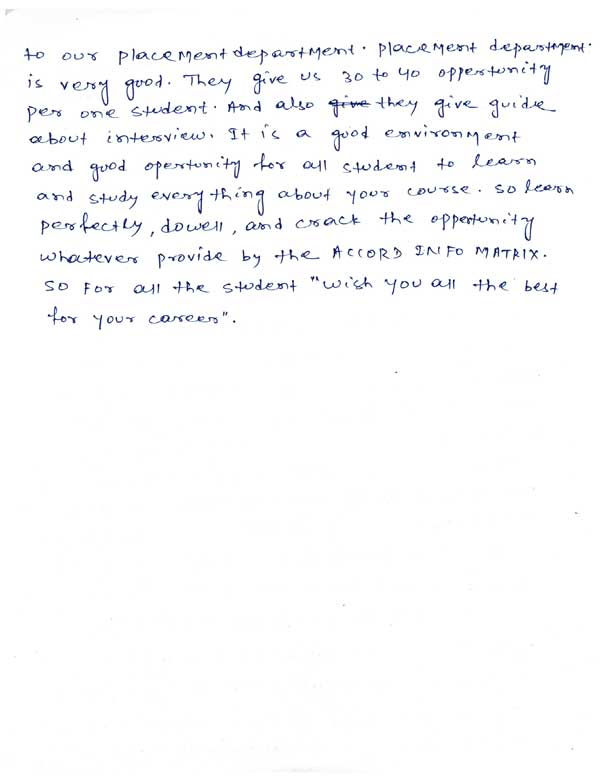 to our placement department. placement department.
is very good. They give us 30 to 40 oppertunity
per one student. And also give they give guide
about interview. It is a good environment
and good opertunity for all student to learn
and study everything about your course. so learn
perfectly, dowell, and crack the oppertunity
whatever provide by the ACCORD INFO MATRIX.
so for all the student "wish you all the best
for your career".